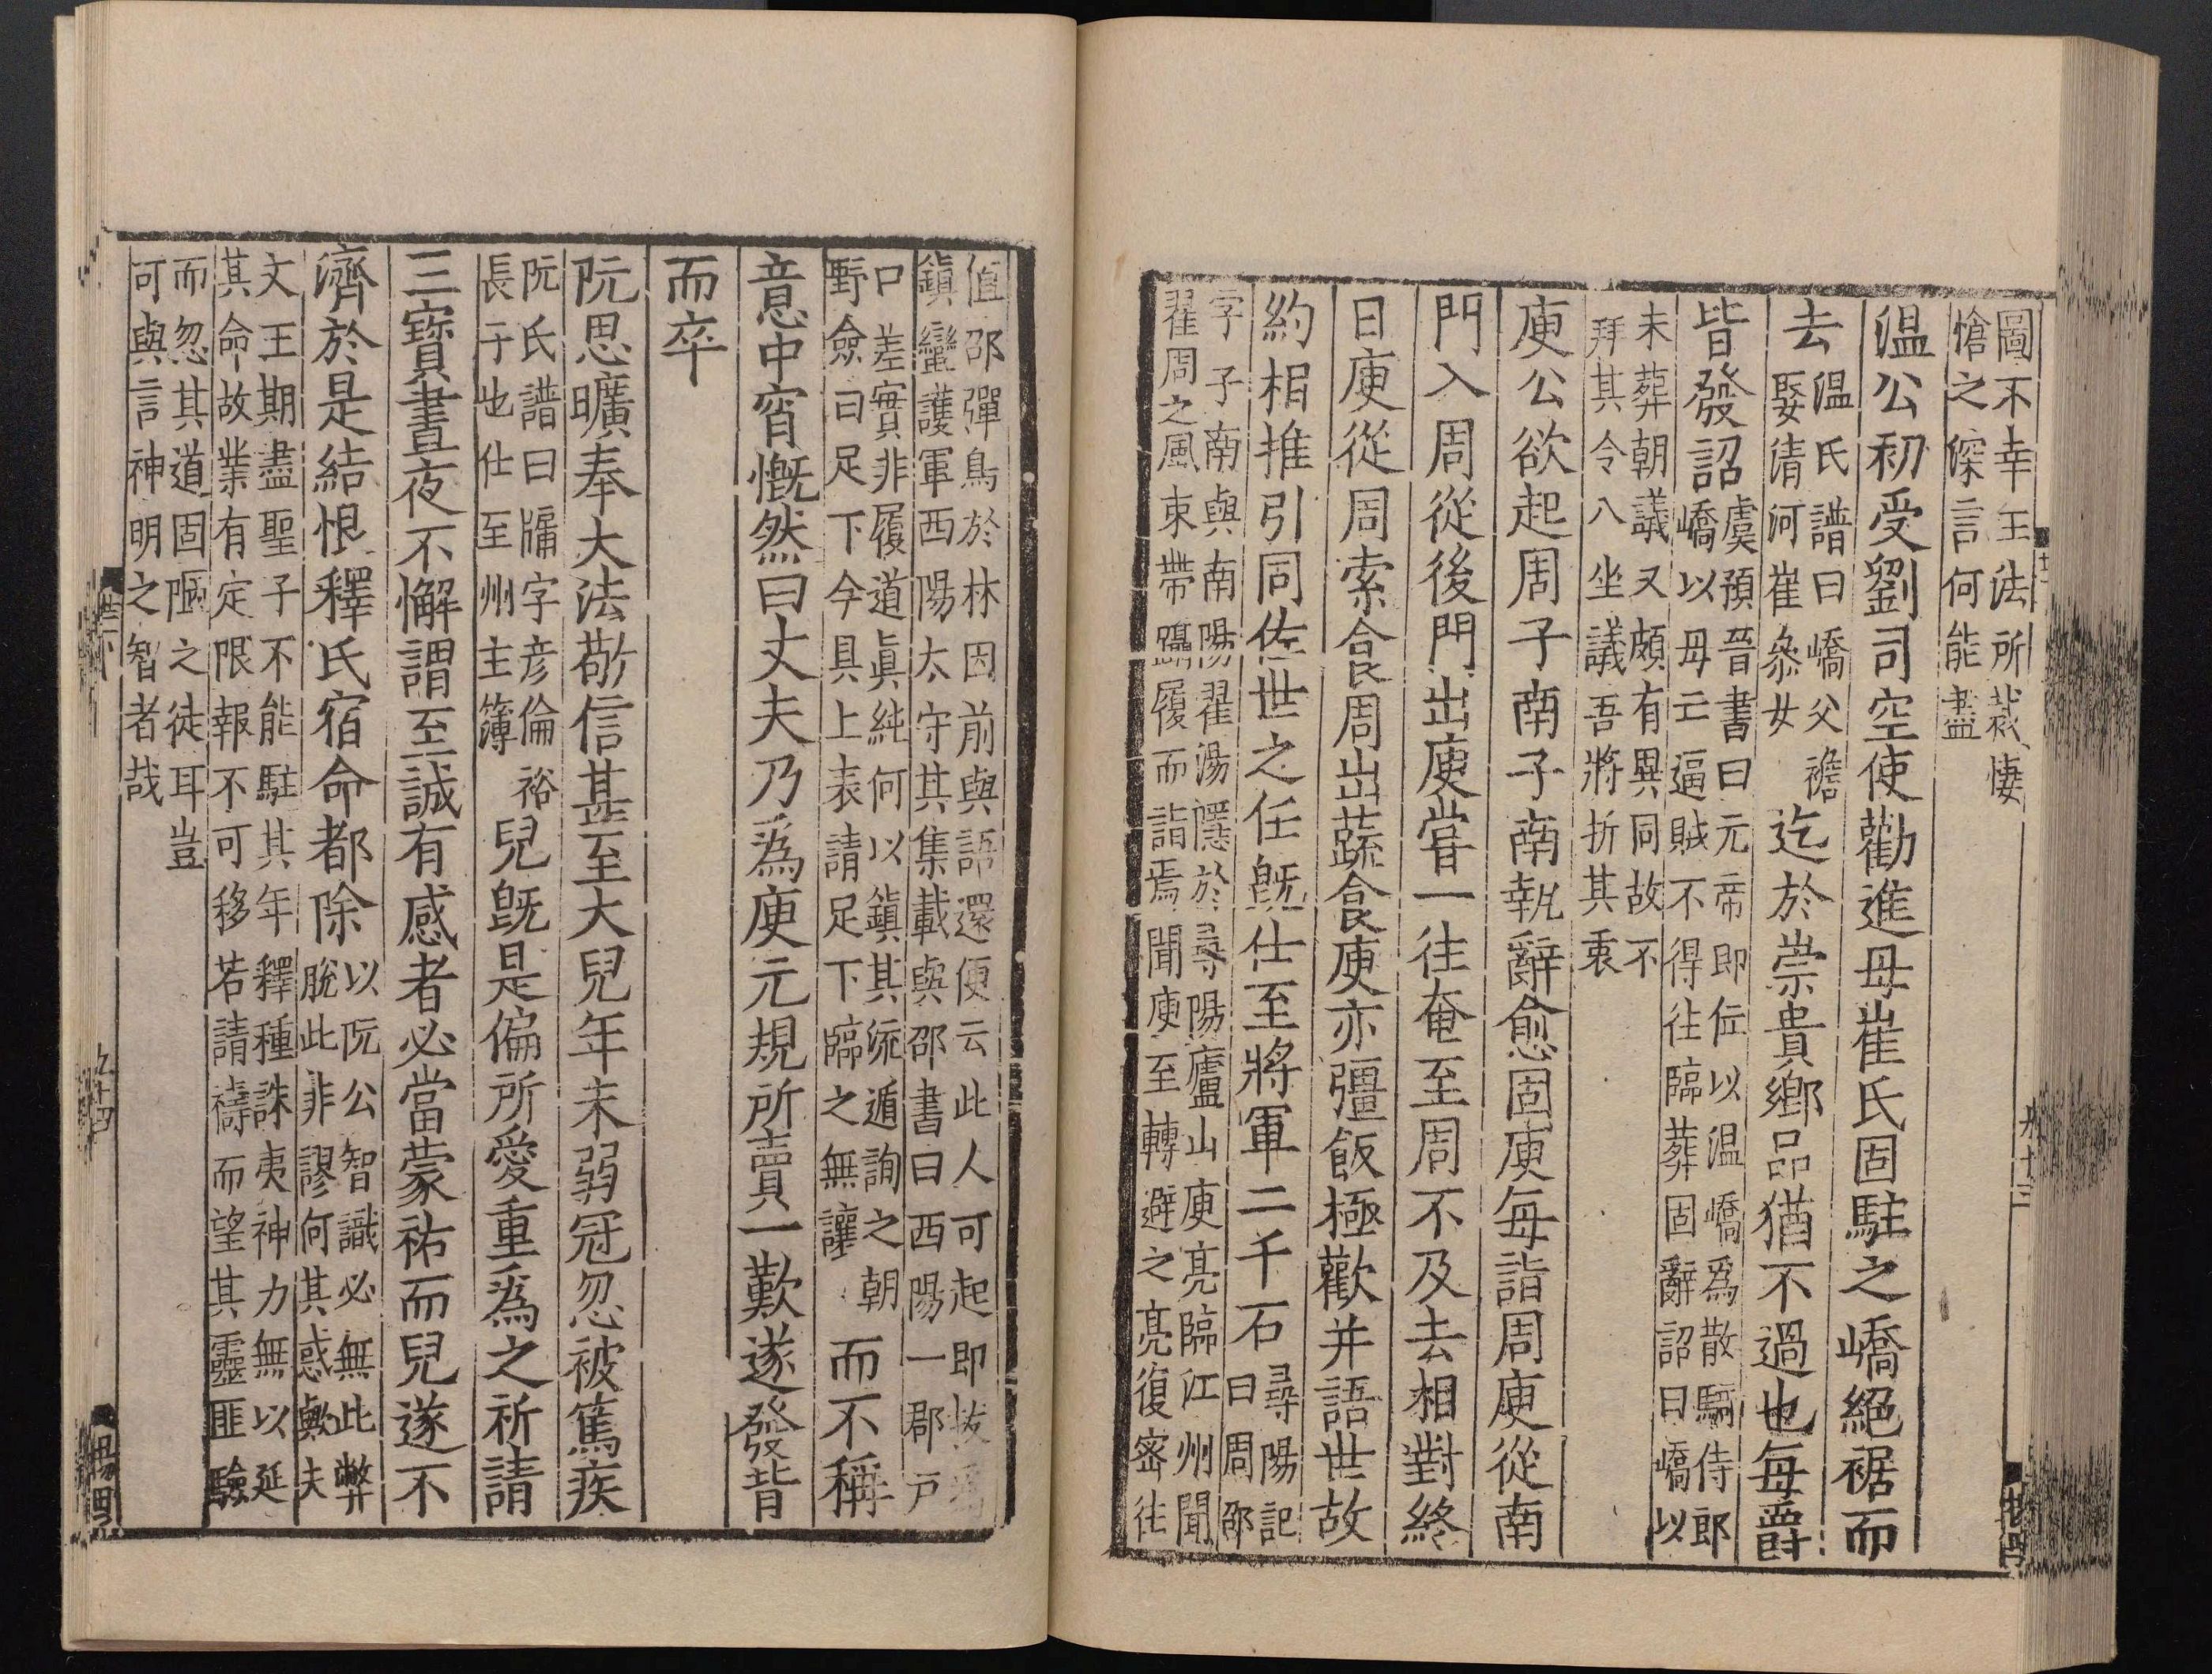 圖不幸王法所裁悽
愴之深言何能盡
温公初受劉司空使勸進母崔氏固駐之嶠絕裾而
去
温氏譜曰嶠父襜
娶清河崔叅女
迄於崇貴鄉品猶不過也每爵
皆發詔
虞預晉書曰元帝即位以温嶠爲散騎侍郎
嶠以母亡逼賊不得往臨葬固辭詔曰嶠以
未葬朝議又頗有異同故不
拜其令八坐議吾將折其衷
庾公欲起周子南子南執辭愈固庾每詣周庾從南
門入周從後門出庾嘗一往奄至周不及去相對終
日庾從周索食周出蔬食庾亦彊飯極歡并語世故
約相推引同佐世之任旣仕至將軍二千石
尋陽記
曰周邵
字子南與南陽翟湯隱於尋陽廬山庾亮臨江州聞
翟周之風束帶躡履而詣焉聞庾至轉避之亮復密往
值邵彈鳥於林因前與語還便云此人可起即拔爲
鎮蠻護軍西陽太守其集載與邵書曰西陽一郡戸
口差實非履道眞純何以鎮其流遁詢之朝
野僉曰足下今具上表請足下臨之無讓
而不稱
意中宵慨然曰丈夫乃爲庾元規所賣一歎遂發背
而卒
阮思曠奉大法敬信甚至大兒年未弱冠忽被篤疾
阮氏譜曰牖字彦倫裕
長子也仕至州主簿
兒旣是偏所愛重爲之祈請
三寶晝夜不懈謂至誠有感者必當蒙祐而兒遂不
濟於是結恨釋氏宿命都除
以阮公智識必無此弊
脫此非謬何其惑歟夫
文王期盡聖子不能駐其年釋種誅夷神力無以延
其命故業有定限報不可移若請禱而望其靈匪驗
而忽其道固陋之徒耳豈
可與言神明之智者哉